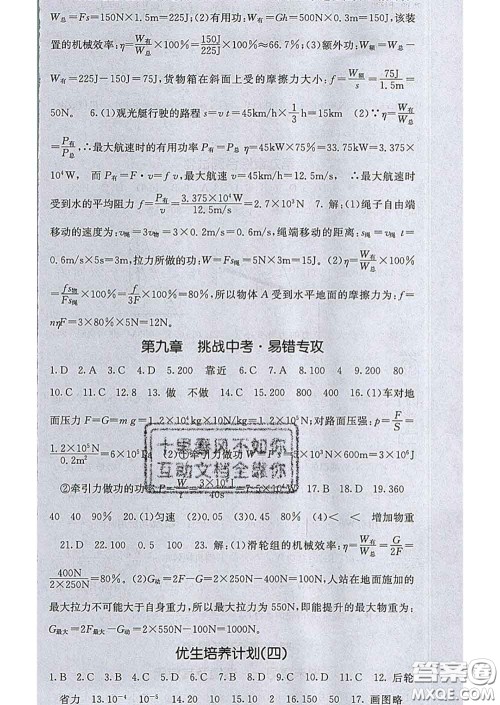 W总=Fs=150N×1.5m=225J;(2)有用功:W有=Gh=500N×0.3m=150J,该装
置的机械效率:η=W有/W总×100%=150J/225J×100%≈66.7%;(3)额外功:W额=W总-
W有=225J-150J=75J,货物箱在斜面上受的摩擦力大小:f=W额/s=75J/1.5m=
50N。 6.(1)观光艇行驶的路程 s=vt=45km/h×1/3h=15km (2)∵η=W有/W总
=P有/P总,∴最大航速时的有用功率 P有=ηP总=45kW×75%=33.75kW=3.375×
10⁴W, 而 P有=F·v=fv,最大航速 v=45km/h=12.5m/s, ∴最大航速时
受到水的平均阻力 f=P有/v=3.375×10⁴W/12.5m/s=2.7×10³N 7.解:(1)绳子自由端
移动的速度为:v绳=3v物=3×0.2m/s=0.6m/s,绳端移动的距离:s绳=v绳t=
0.6m/s×5s=3m,拉力所做的功:W=Fs绳=5N×3m=15J。(2)η=W有/W总×100%
=fs物/Fs绳×100%=f/3F×100%=80%,所以物体A受到水平地面的摩擦力为:f=
nηF=3×80%×5N=12N。
第九章 挑战中考·易错专攻
1.D 2.A 3.C 4.D 5.200 靠近 6.C 7.A 8.100 4 9.200 80
10.C 11.C 12.8 13.做 不做 14.2.4 200 15.4000 400 16.(1)车对地
面压力 F=G=mg=1.2×10⁴kg×10N/kg=1.2×10⁵N;对路面压强:p=F/S=
1.2×10⁵N/0.2m²=6×10⁵Pa (2)①牵引力做功
②牵引力做功的功率 P=W/t= 40s =7.5×10⁴W 17.B 18.D 19.360
40 40 90% 20.(1)匀速 (2)0.05 (3)0.45 80% (4)< < 增加物重
21.D 22.D 100 0.5 40 23.解:(1)滑轮组的机械效率:η=W有/W总=G/2F=
400N/2×250N=80%。(2)G动=2F-G=2×250N-400N=100N,人站在地面施加的
最大拉力不可能大于自身重力,所以拉力为550N,即能提升的最大物重为:
G最大=2F最大-G动=2×550N-100N=1000N。
优生培养计划(四)
1.B 2.D 3.C 4.D 5.C 6.D 7.B 8.D 9.B 10.C 11.C 12.后轮
省力 13.10⁻⁴ 10⁻⁵ 14.20 20 15.200 150 16.50 17.画图略
十里春风不如你
互动文档全靠你
答案圈
MXQE.COM